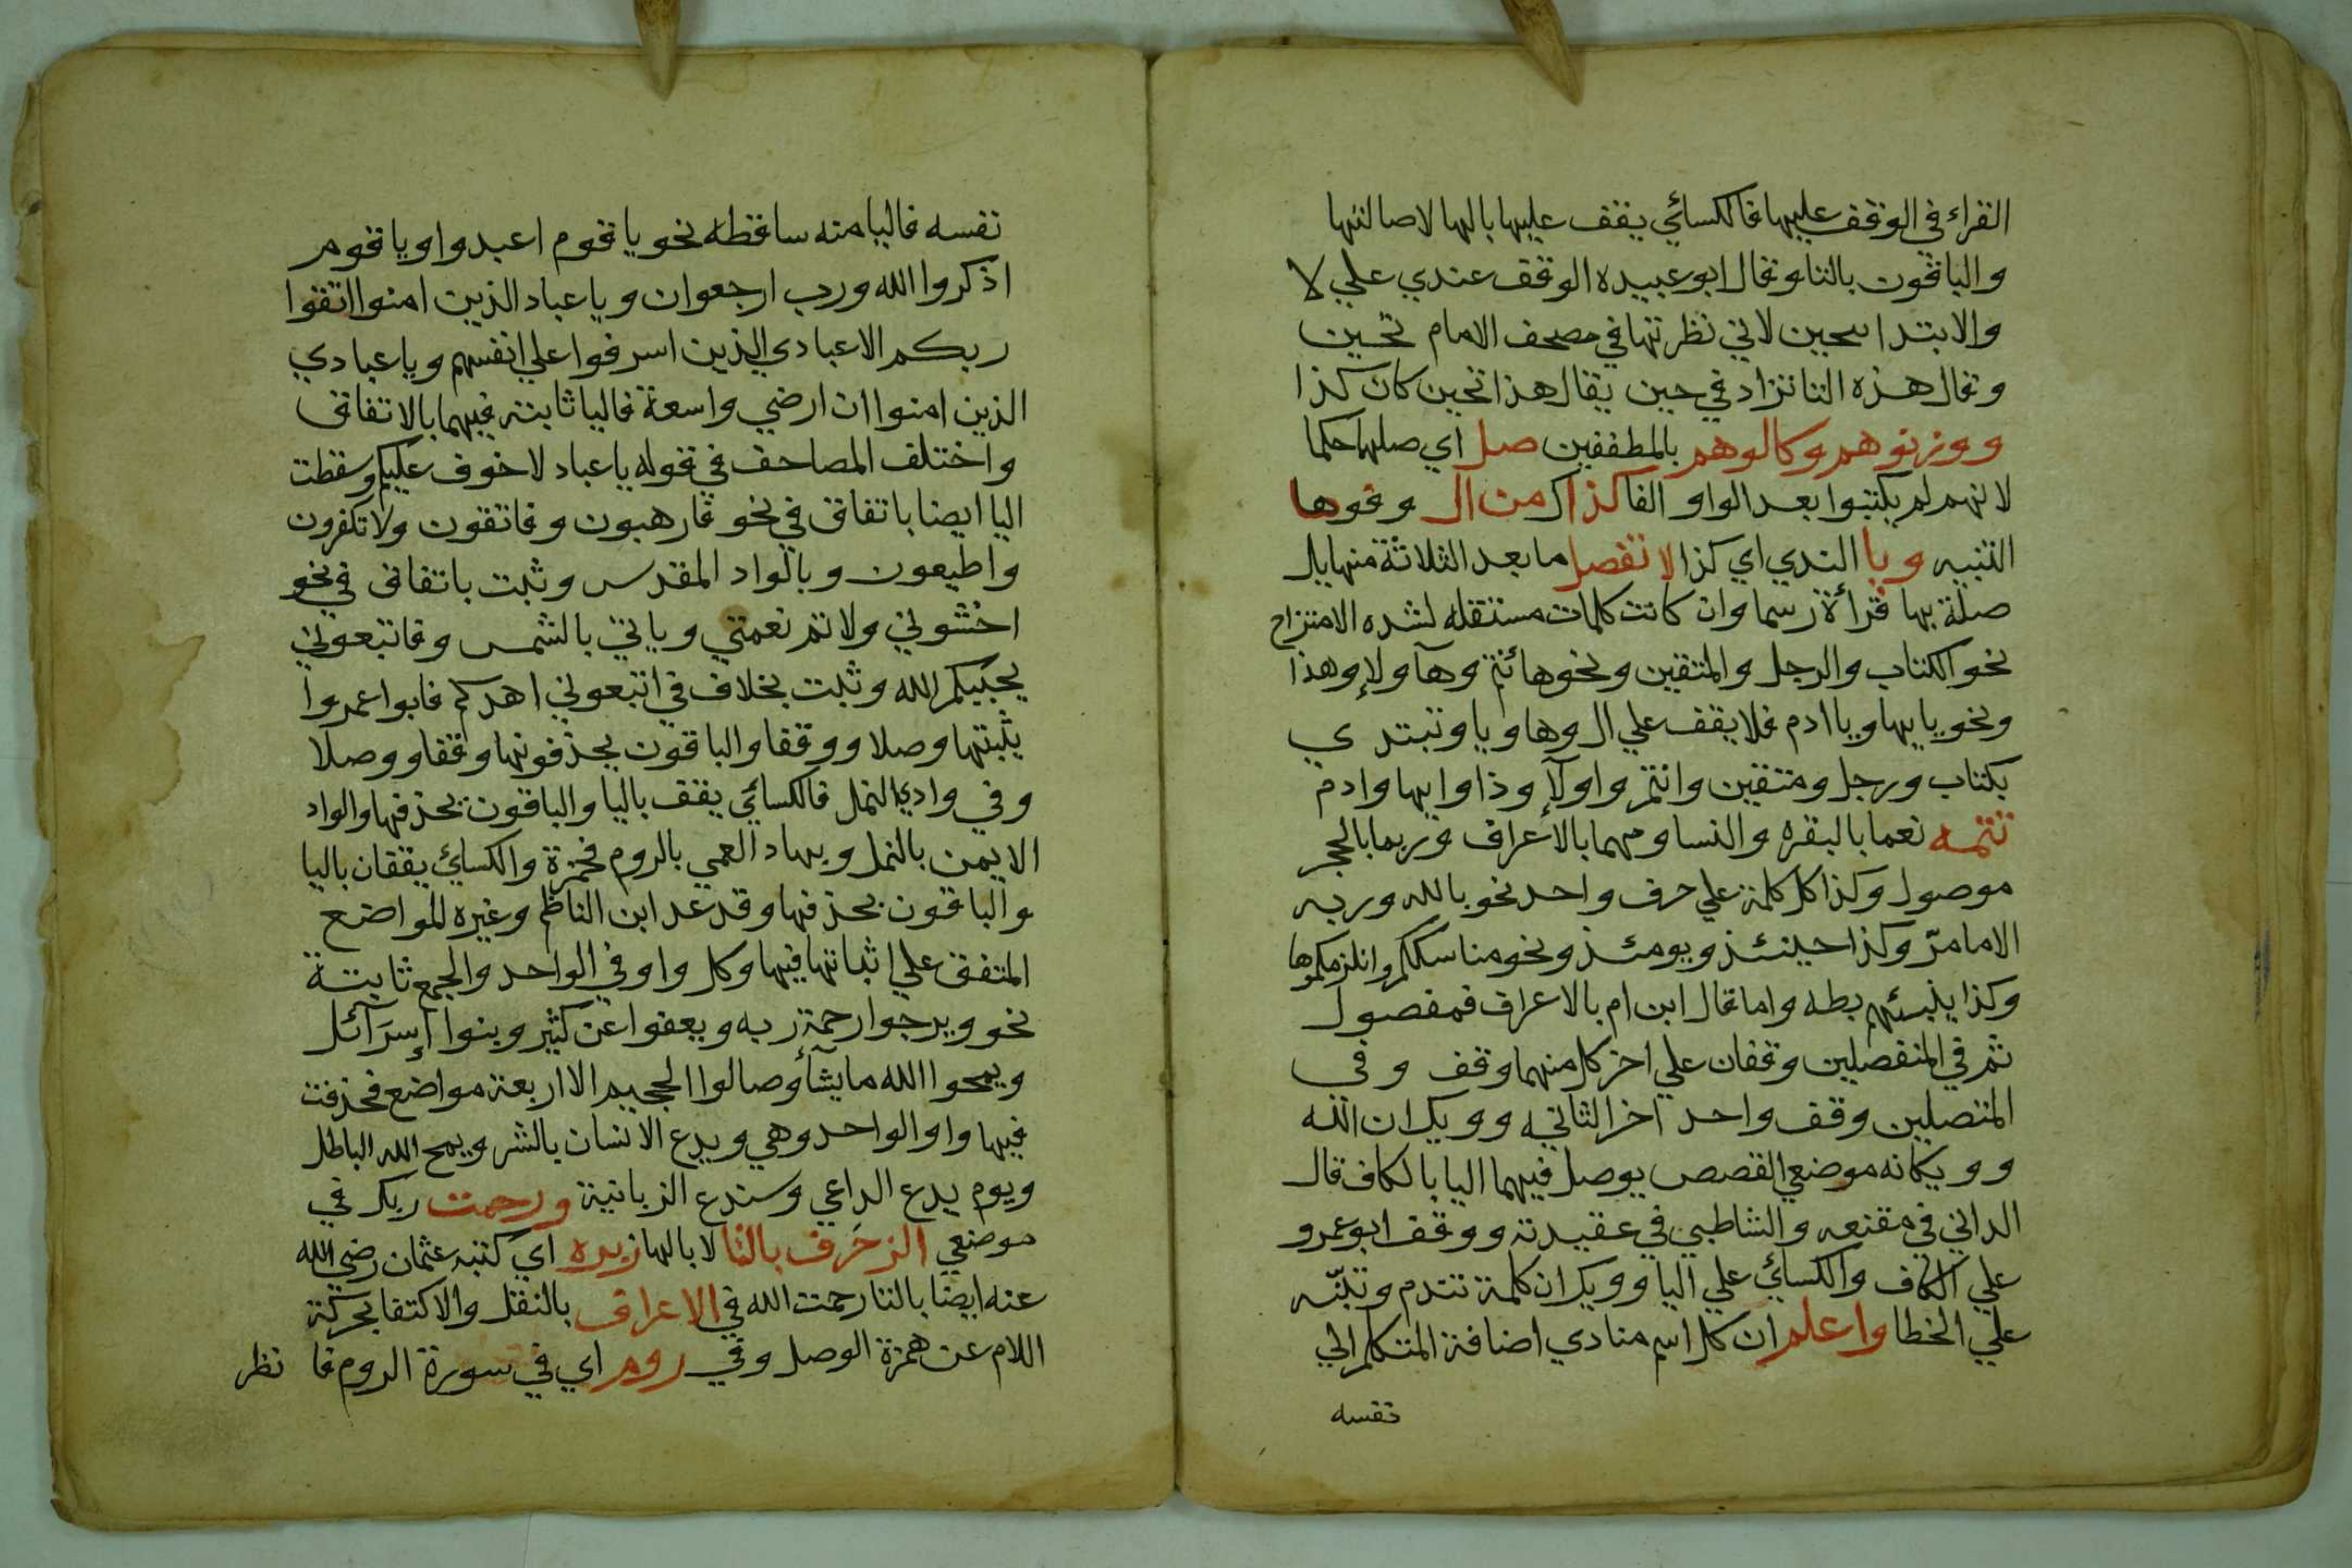 القراء في الوقف عليها فالكسائي يقف عليها بالها لاصالتها
والباقون بالتا وقال ابو عبيده الوقف عندي علي لا
والابتدا بحين لاني نظرتها في مصحف الامام تحين
وقال هذه التا تزاد في حين يقال هذا تحين كان كذا
ووزنوهم وكالوهم بالمطففين صل اي صلهما حكما
لانهم لم يكتبوا بعد الواو الفا كذا ك من ال وفوها
التنبيه ويا الندي اي كذا لا تفصل ما بعد الثلاثة منها بل
صلة بها قرأة رسما وان كانت كلمات مستقله لشده الامتزاج
نحو الكتاب والرجل والمتقين ونحوها أنتم وهآولإ وهذا
ونحو يايها ويا ادم فلا يقف علي ال وها ويا وتبتدي
بكتاب ورجل ومتقين وانتم واولآإ وذا وايها وادم
تتمه نعما بالبقره والنسا ومهما بالاعراف وربما بالحجر
موصول وكذا كل كلمة علي حرف واحد نحو بالله وربه
الامامرّ وكذا حينئذ ويومئذ ونحو مناسككم وانلزمكموها
وكذا يبنئهم بطه واما قال ابن ام بالاعراف فمفصول
ثم في المنفصلين وقفان علي اخر كل منهما وقف وفي
المتصلين وقف واحد اخر الثانيه وويكان الله
وويكانه موضعي القصص يوصل فيهما اليا بالكاف قال
الداني في مقنعه والشاطبي في عقيدته ووقف ابو عمرو
علي الكاف والكسائي علي اليا وويكان كلمة تندم وتنبّه
علي الخطا واعلم ان كل اسم منادي اضافة المتكلم الي
نفسه
نفسه فاليا منه ساقطه نحو يا قوم اعبدوا ويا قوم
اذكروا الله ورب ارجعوان ويا عباد الذين امنوا اتقوا
ربكم الاعبادي الذين اسرفوا علي انفسهم ويا عبادي
الذين امنوا ان ارضي واسعة فاليا ثابته فيهما بالاتفاق
واختلف المصاحف في قوله يا عباد لا خوف عليكم وسقطت
اليا ايضا باتفاق في نحو فارهبون وفاتقون ولا تكفرون
واطيعون وبالواد المقدس وثبت باتفاق في نحو
اخشوني ولاتم نعمتي وياتي بالشمس وفاتبعوني
يحببكم الله وثبت بخلاف في اتبعوني اهدكم فابوا عمروا
يثبتها وصلا ووقفا والباقون يحذفونها وقفا ووصلا
وفي وادي النمل فالكسائي يقف باليا والباقون بحذفها والواد
الايمن بالنمل وبهاد العمي بالروم فحمزة والكسائي يقفان باليا
والباقون بحذفها وقد عد ابن الناظم وغيره المواضع
المتفق علي اثباتها فيها وكل واو في الواحد والجمع ثابتة
نحو ويرجوا رحمة ربه ويعفوا عن كثير وبنوا إسرآئل
ويمحوا الله ما يشأ وصالوا الجحيم الا اربعة مواضع فحذفت
فيها واو الواحد وهي ويدع الانسان بالشر ويمح الله الباطل
ويوم يدع الداعي وسندع الزبانية ورحمت ربك في
موضعي الزخرف بالتا لا بالها زبره اي كتبه عثمان رضي الله
عنه ايضا بالتا رحمت الله في الاعراف بالنقل والاكتفا بحركة
اللام عن همزة الوصل وفي روم اي في سورة الروم فا نظر